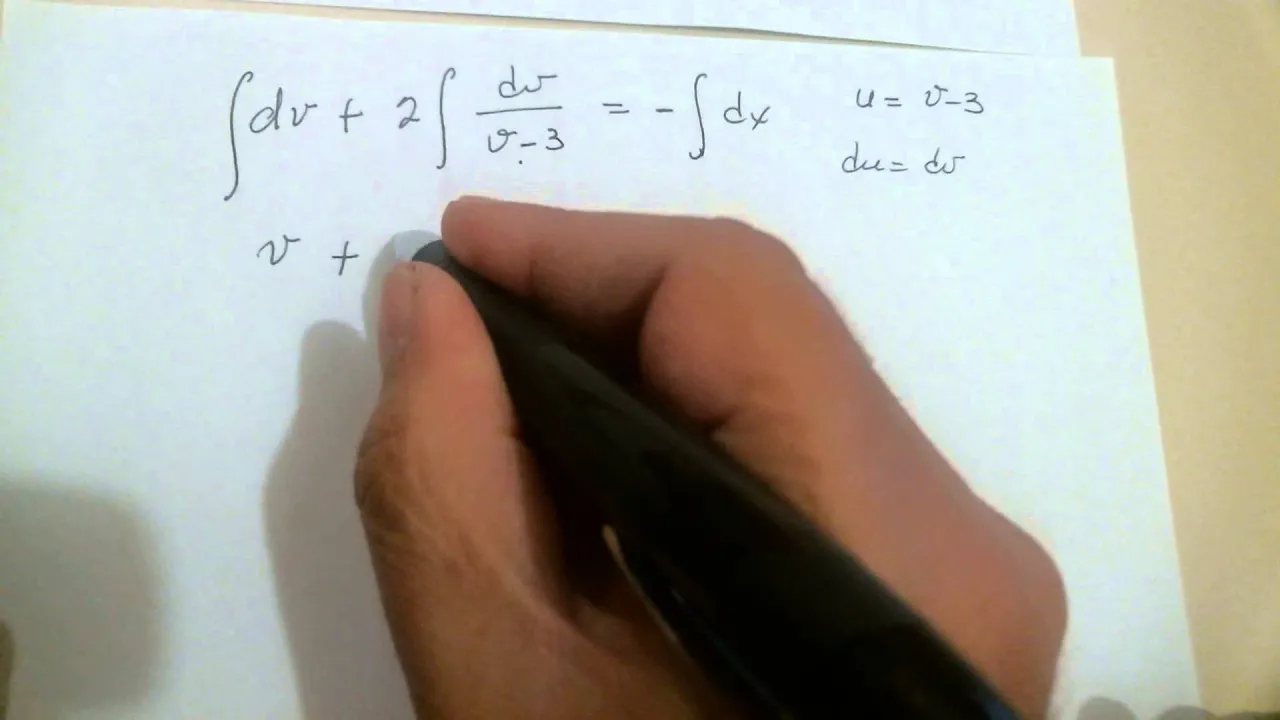 ∫dv + 2∫ dv/(v-3) = -∫dx
u = v-3
du = dv
v +